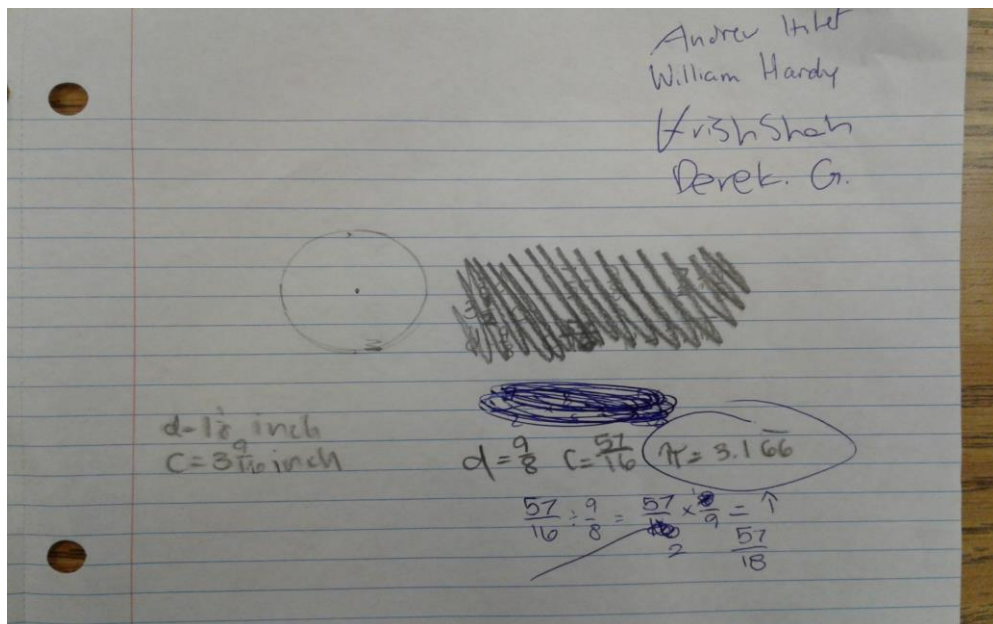 Andrew
William Hardy
Krish Shah
Derek. G.
d=1 1/8 inch
C=3 9/16 inch
d = 9/8 C = 57/16 π = 3.166
57/16 ÷ 9/8 = 57/2 × /9 = ↑
57/18